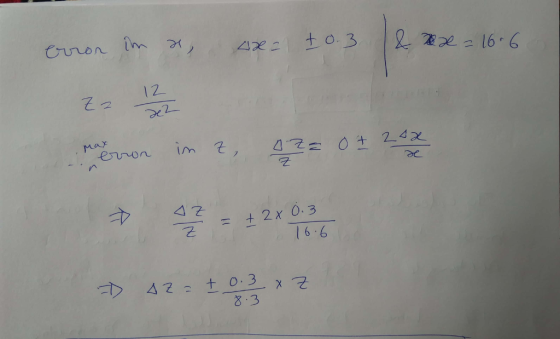 error in x, Δx = ± 0.3 | & x = 16.6
z = 12/x²
∴ max error in z, Δz/z = 0 ± 2Δx/x
⇒ Δz/z = ± 2 × 0.3/16.6
⇒ Δz = ± 0.3/8.3 × z